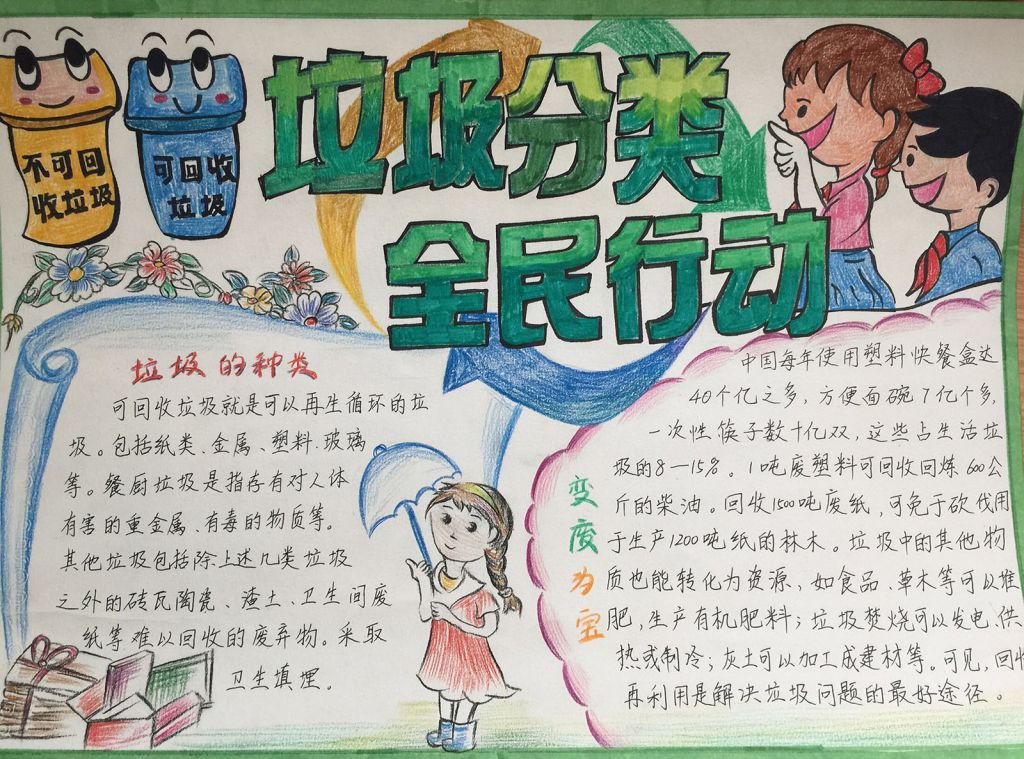 不可回
收垃圾
可回收
垃圾
垃圾分类
全民行动
垃圾的种类
可回收垃圾就是可以再生循环的垃
圾。包括纸类、金属、塑料、玻璃
等。餐厨垃圾是指存有对人体
有害的重金属、有毒的物质等。
其他垃圾包括除上述几类垃圾
之外的砖瓦陶瓷、渣土、卫生间废
纸等难以回收的废弃物。采取
卫生填埋。
变废为宝
中国每年使用塑料快餐盒达
40个亿之多，方便面碗7亿个多，
一次性筷子数十亿双，这些占生活垃
圾的8—15%。1吨废塑料可回收回炼600公
斤的柴油。回收1500吨废纸，可免于砍伐用
于生产1200吨纸的林木。垃圾中的其他物
质也能转化为资源，如食品、草木等可以堆
肥，生产有机肥料；垃圾焚烧可以发电、供
热或制冷；灰土可以加工成建材等。可见，回收
再利用是解决垃圾问题的最好途径。